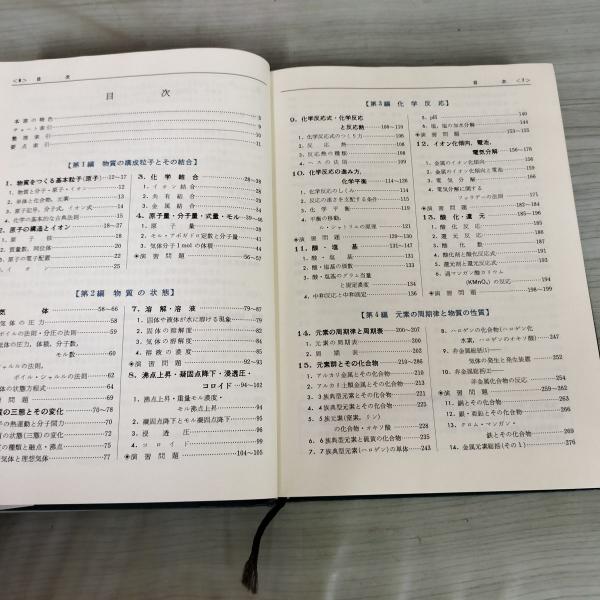 <6> 目 次
目 次
本書の特色 5
チャート索引 9
整理索引 10
要点索引 11
【第1編 物質の構成粒子とその結合】
1. 物質をつくる基本粒子(原子) 12~17
1. 物質と分子・原子・イオン 12
2. 単体と化合物, 元素 13
3. 原子記号, 分子式, イオン式 14
4. 化学の基本的な古典法則 15
2. 原子の構造とイオン 18~27
1. 原子核 18
2. 質量数, 同位体 20
3. 原子の電子配置 22
イオン 25
3. 化学結合 28~38
1. イオン結合 28
2. 共有結合 29
3. 金属結合 34
4. 原子量・分子量・式量・モル 39~55
1. 原子量 39
2. モル・アボガドロ定数と分子量 41
3. 気体分子1molの体積 44
◉演習問題 56~57
【第2編 物質の状態】
気体 58~66
気体の圧力 58
ボイルの法則・分圧の法則 59
気体の圧力, 体積, 分子数,
モル数 60
シャルルの法則,
ボイル・シャルルの法則 62
気体の状態方程式 64
演習問題 69
物質の三態とその変化 70~78
分子の熱運動と分子間力 70
物質の状態(三態)の変化 72
結晶の種類と融点・沸点 75
実在気体と理想気体 77
7. 溶解・溶液 79~87
1. 固体や液体が水に溶ける現象 79
2. 固体の溶解度 82
3. 気体の溶解度 84
4. 溶液の濃度 85
◉演習問題 92~93
8. 沸点上昇・凝固点降下・浸透圧・
コロイド 94~102
1. 沸点上昇・重量モル濃度・
モル沸点上昇 94
2. 凝固点降下とモル凝固点降下 95
3. 浸透圧 96
4. コロイド 99
◉演習問題 104~105
目 次 <7>
【第3編 化学反応】
9. 化学反応式・化学反応
と反応熱 106~119
1. 化学反応式のつくり方 106
2. 反応熱 108
3. 反応熱の種類 108
4. ヘスの法則 109
10. 化学反応の進み方,
化学平衡 114~126
1. 化学反応のしくみ 114
2. 反応の速さを支配する条件 115
3. 化学平衡 119
4. 平衡の移動,
ル・シャトリエの原理 121
◉演習問題 129~130
11. 酸・塩基 131~147
1. 酸・塩基 131
2. 酸・塩基の価数 133
3. 酸・塩基のグラム当量
と規定濃度 134
4. 中和反応と中和滴定 136
5. pH 140
6. 塩, 塩の加水分解 144
◉演習問題 153~155
12. イオン化傾向, 電池,
電気分解 156~178
1. 金属のイオン化傾向 156
2. 金属のイオン化傾向と電池 159
3. 電気分解 165
4. 電気分解に関する
ファラデーの法則 171
◉演習問題 183~184
13. 酸化・還元 185~196
1. 酸化反応 185
2. 還元反応 185
3. 酸化数 187
4. 酸化剤と酸化反応式
5. 還元剤と還元反応式
6. 過マンガン酸カリウム
(KMnO₄)の反応 194
◉演習問題 198~199
【第4編 元素の周期律と物質の性質】
14. 元素の周期律と周期表 200~207
1. 元素の周期律の表 200
2. 周期表 202
15. 元素群とその化合物 210~286
1. アルカリ金属とその化合物 210
2. アルカリ土類金属とその化合物 213
3. 3族典型元素とその化合物 221
4. 4族典型元素とその化合物 225
5. 5族元素(窒素, リン)
の化合物・オキソ酸 228
6. 6族典型元素と硫黄の化合物 235
7. 7族典型元素(ハロゲン)の単体 243
8. ハロゲンの化合物(ハロゲン化
水素, ハロゲンのオキソ酸) 247
9. 非金属総括(一)
気体の発生と発生装置 252
10. 非金属総括(二)
非金属化合物の反応 254
◉演習問題 259~262
11. 銅とその化合物 263
12. 銀・亜鉛とその化合物 266
13. クロム・マンガン・
鉄とその化合物 269
14. 金属元素総括(その1) 276